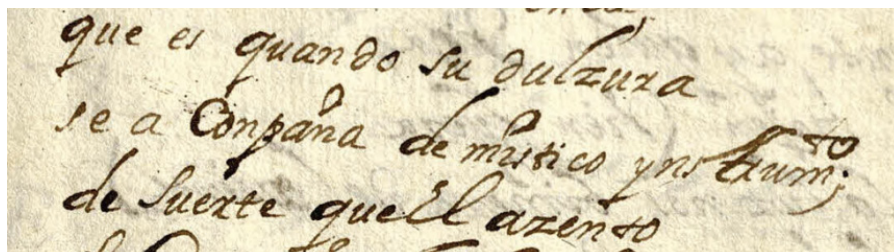 que es quando su dulzura
se a Conpaña de musico ynstrumto;
de suerte que El azento